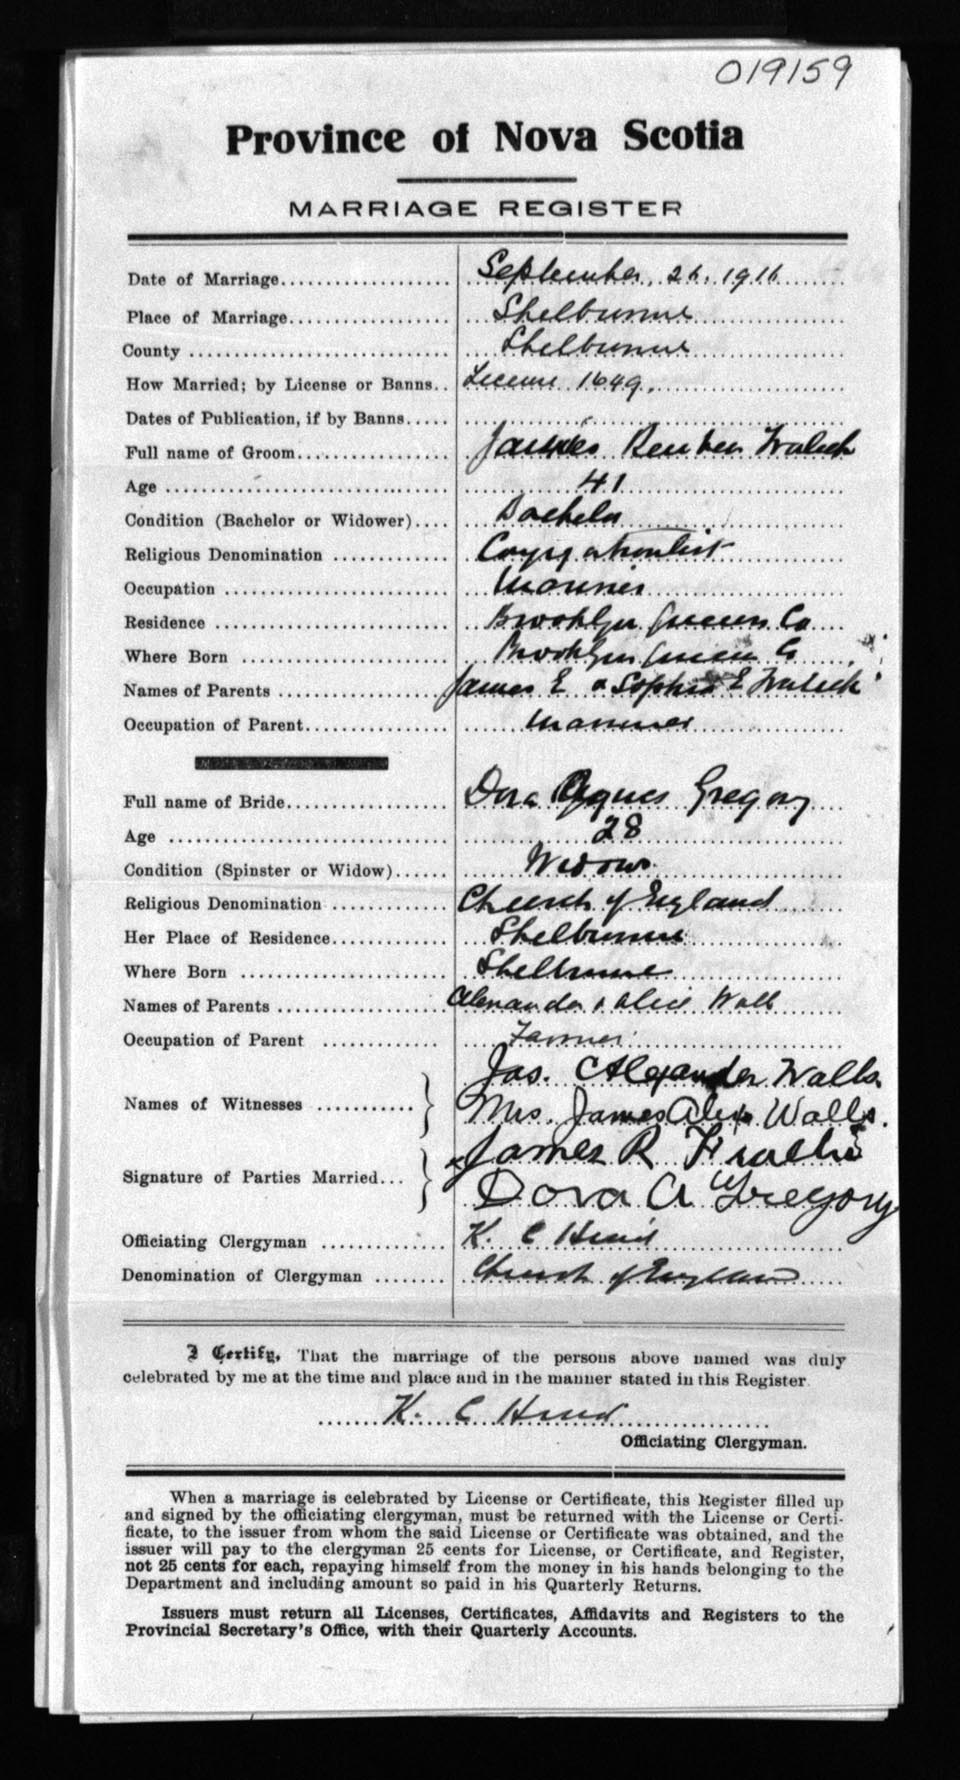 019159
Province of Nova Scotia
MARRIAGE REGISTER
Date of Marriage.................... September, 26, 1916
Place of Marriage.................. Shelburne
County ............................. Shelburne
How Married; by License or Banns.. License 1649.
Dates of Publication, if by Banns.....
Full name of Groom................ James Reuben
Age ................................ 41
Condition (Bachelor or Widower).... Bachelor
Religious Denomination ............ Congregationalist
Occupation ......................... Mariner
Residence .......................... Brooklyn Queens Co
Where Born ....................... Brooklyn Queens Co
Names of Parents ................... James E & Sophia E
Occupation of Parent................ Mariner
Full name of Bride.................. Dora Agnes Gregory
Age ................................ 28
Condition (Spinster or Widow)...... Widow
Religious Denomination ............ Church of England
Her Place of Residence............. Shelburne
Where Born ....................... Shelburne
Names of Parents ................... Alexander & Alice Walls
Occupation of Parent ............. Farmer
Names of Witnesses ............ } Jas. Alexander Walls
Mrs. James Alex Walls.
Signature of Parties Married... } James R
Dora A Gregory
Officiating Clergyman ............. K. C Hind
Denomination of Clergyman ........ Church of England
I Certify, That the marriage of the persons above named was duly
celebrated by me at the time and place and in the manner stated in this Register.
K. C Hind
Officiating Clergyman.
When a marriage is celebrated by License or Certificate, this Register filled up
and signed by the officiating clergyman, must be returned with the License or Certi-
ficate, to the issuer from whom the said License or Certificate was obtained, and the
issuer will pay to the clergyman 25 cents for License, or Certificate, and Register,
not 25 cents for each, repaying himself from the money in his hands belonging to the
Department and including amount so paid in his Quarterly Returns.
Issuers must return all Licenses, Certificates, Affidavits and Registers to the
Provincial Secretary's Office, with their Quarterly Accounts.